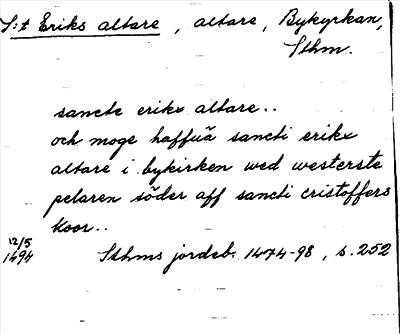 S:t Eriks altare, altare, Bykyrkan,
Sthm.
sancte erikx altare..
och moge haffuã sancti erikx
altare i bykirken wed westerste
pelaren söder aff sancti cristoffers
koor..
12/5
1494 Sthms jordeb. 1474-98, s. 252